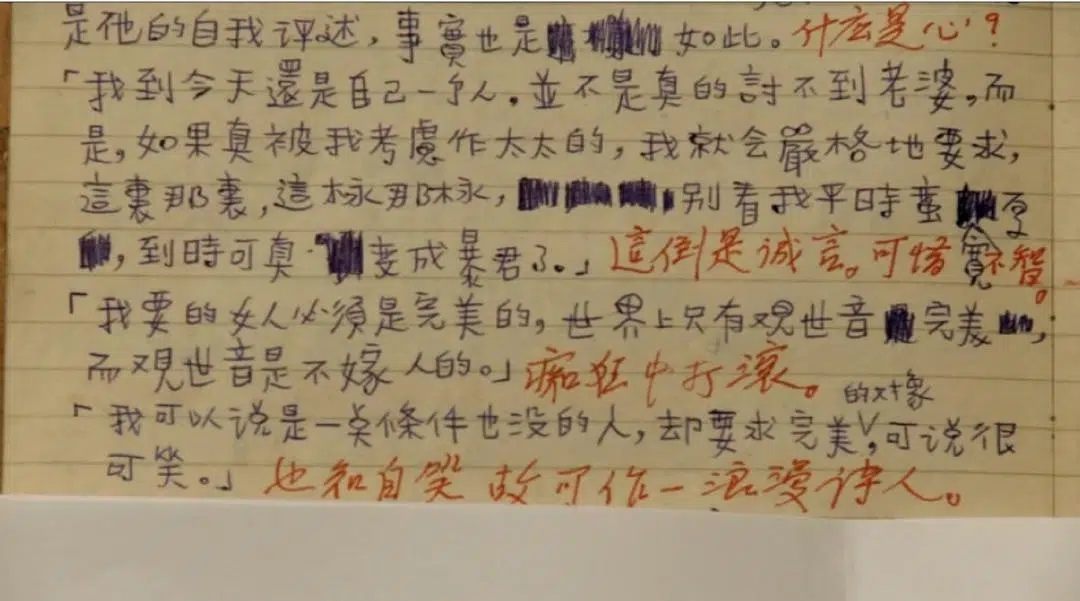 是他的自我评述，事實也是如此。什么是心？
「我到今天還是自己一个人。並不是真的討不到老婆，而
是，如果真被我考慮作太太的，我就会嚴格地要求，
這裏那裏，這樣那樣，别看我平時蛮
，到時可真变成暴君了。」這倒是诚言。可惜不智。
「我要的女人必須是完美的，世界上只有观世音完美，
而观世音是不嫁人的。」痴狂中打滾。
的对像
「我可以说是一点條件也没的人，却要求完美，可说很
可笑。」也知自笑 故可作一浪漫诗人。